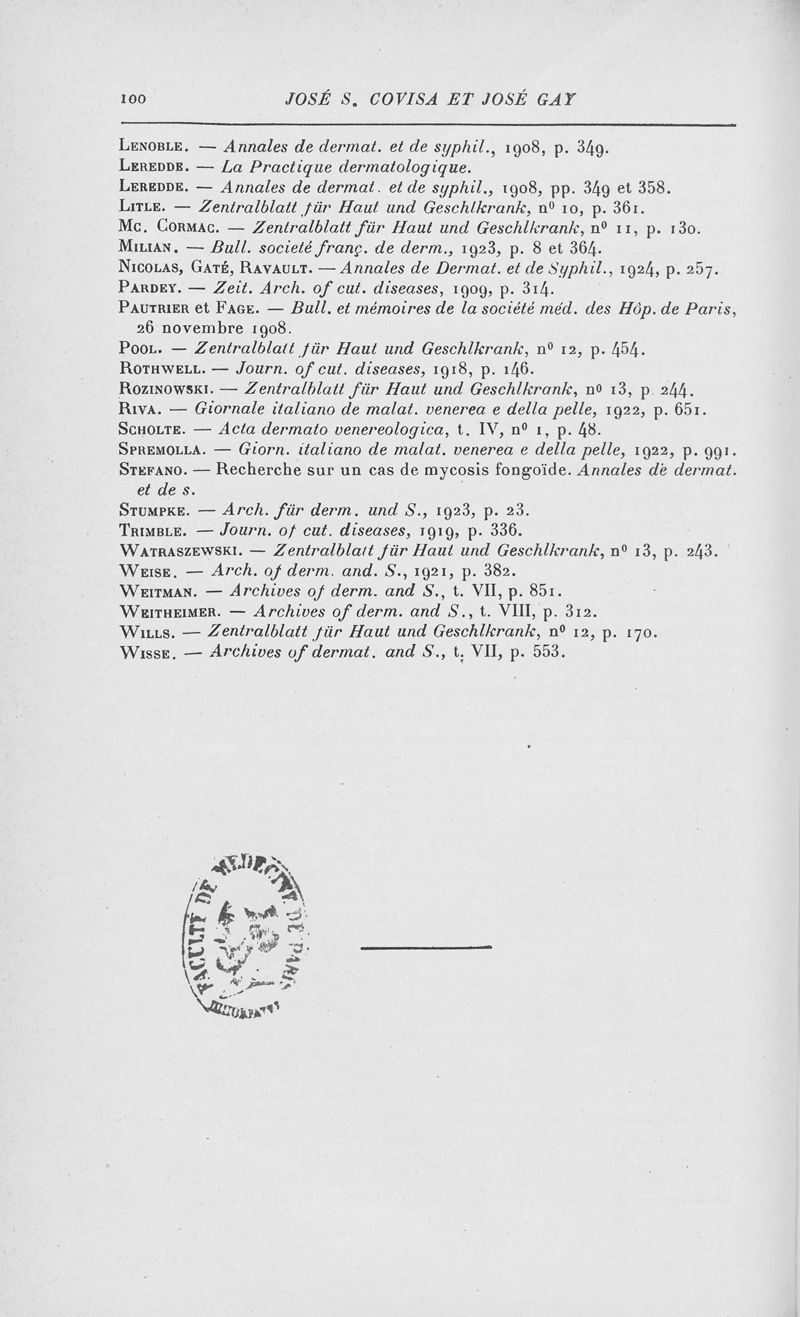 100 JOSÉ S. COVISA ET JOSÉ GAY
LENOBLE. — Annales de dermat. et de syphil., 1908, p. 349.
LEREDDE. — La Practique dermatologique.
LEREDDE. — Annales de dermat. et de syphil., 1908, pp. 349 et 358.
LITLE. — Zentralblatt für Haut und Geschlkrank, nº 10, p. 361.
MC. CORMAC. — Zentralblatt für Haut und Geschlkrank, nº 11, p. 130.
MILIAN. — Bull. societé franç. de derm., 1923, p. 8 et 364.
NICOLAS, GATÉ, RAVAULT. — Annales de Dermat. et de Syphil., 1924, p. 257.
PARDEY. — Zeit. Arch. of cut. diseases, 1909, p. 314.
PAUTRIER et FAGE. — Bull. et mémoires de la société méd. des Hôp. de Paris,
26 novembre 1908.
POOL. — Zentralblatt für Haut und Geschlkrank, nº 12, p. 454.
ROTHWELL. — Journ. of cut. diseases, 1918, p. 146.
ROZINOWSKI. — Zentralblatt für Haut und Geschlkrank, nº 13, p. 244.
RIVA. — Giornale italiano de malat. venerea e della pelle, 1922, p. 651.
SCHOLTE. — Acta dermato venereologica, t. IV, nº 1, p. 48.
SPREMOLLA. — Giorn. italiano de malat. venerea e della pelle, 1922, p. 991.
STEFANO. — Recherche sur un cas de mycosis fongoïde. Annales de dermat.
et de s.
STUMPKE. — Arch. für derm. und S., 1923, p. 23.
TRIMBLE. — Journ. of cut. diseases, 1919, p. 336.
WATRASZEWSKI. — Zentralblatt für Haut und Geschlkrank, nº 13, p. 243.
WEISE. — Arch. of derm. and. S., 1921, p. 382.
WEITMAN. — Archives of derm. and S., t. VII, p. 851.
WEITHEIMER. — Archives of derm. and S., t. VIII, p. 312.
WILLS. — Zentralblatt für Haut und Geschlkrank, nº 12, p. 170.
WISSE. — Archives of dermat. and S., t. VII, p. 553.
FACULTÉ DE MÉDECINE DE PARIS